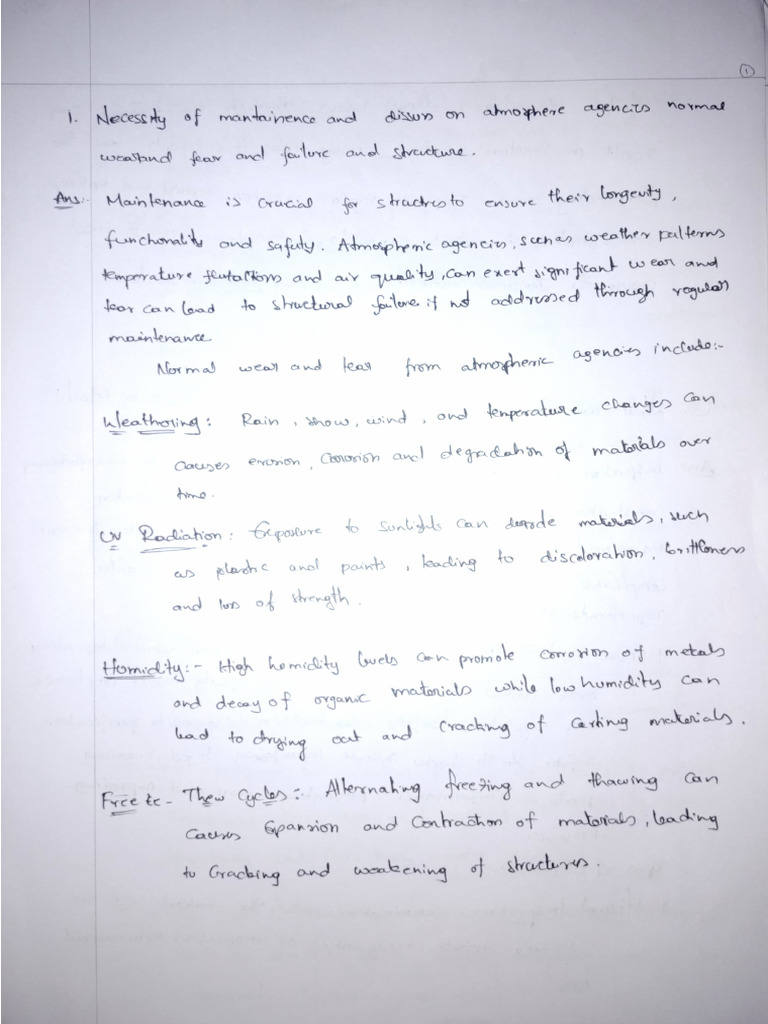 1
1. Necessity of mantainence and disuss on atmosphere agencies normal
wearand fear and failure and structure.
Ans:- Maintenance is crucial for structresto ensure their longevity,
functionality and safuty. Atmospheric agencies, such as weather patterns
temperature flutations and air quality, can exert significant wear and
tear can lead to structural failure if not addressed through regular
maintenance
Normal wear and tear from atmospheric agencies include:-
Weathoring: Rain, snow, wind, and temperature changes can
causes erosion, corrosion and degradation of materials over
time.
UV Radiation: Exposure to sunlights can degrade materials, such
as plastic and paints, leading to discoloration, brittleness
and loss of strength.
Homidity:- High homidity levels can promote corrosion of metals
and decay of organic materials while low humidity can
lead to drying out and cracking of materials.
Freeze - Thew Cycles:- Alternating freezing and thawing can
causes Expansion and contraction of materials, leading
to Cracking and weakening of structures.